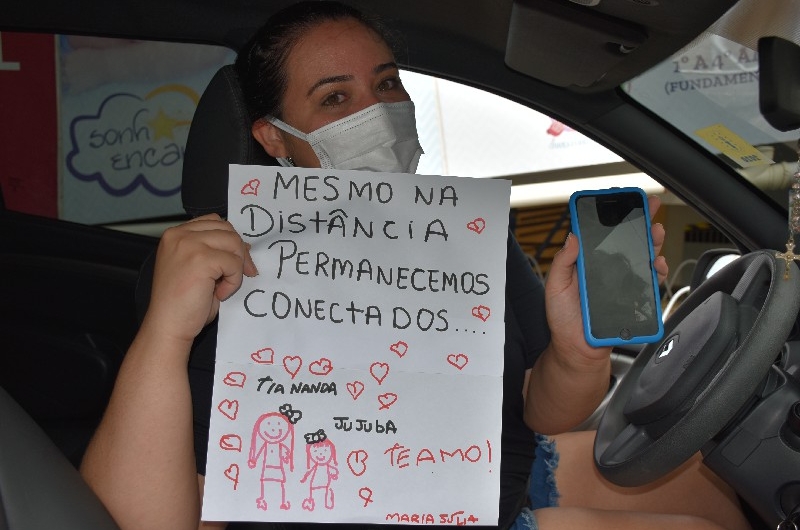 sonh
encan
1º A 4º A
(FUNDAMEN
MESMO NA
DISTÂNCIA
PERMANECEMOS
CONECTADOS....
TIA NANDA
JUJUBA
TE AMO!
MARIA JÚLIA